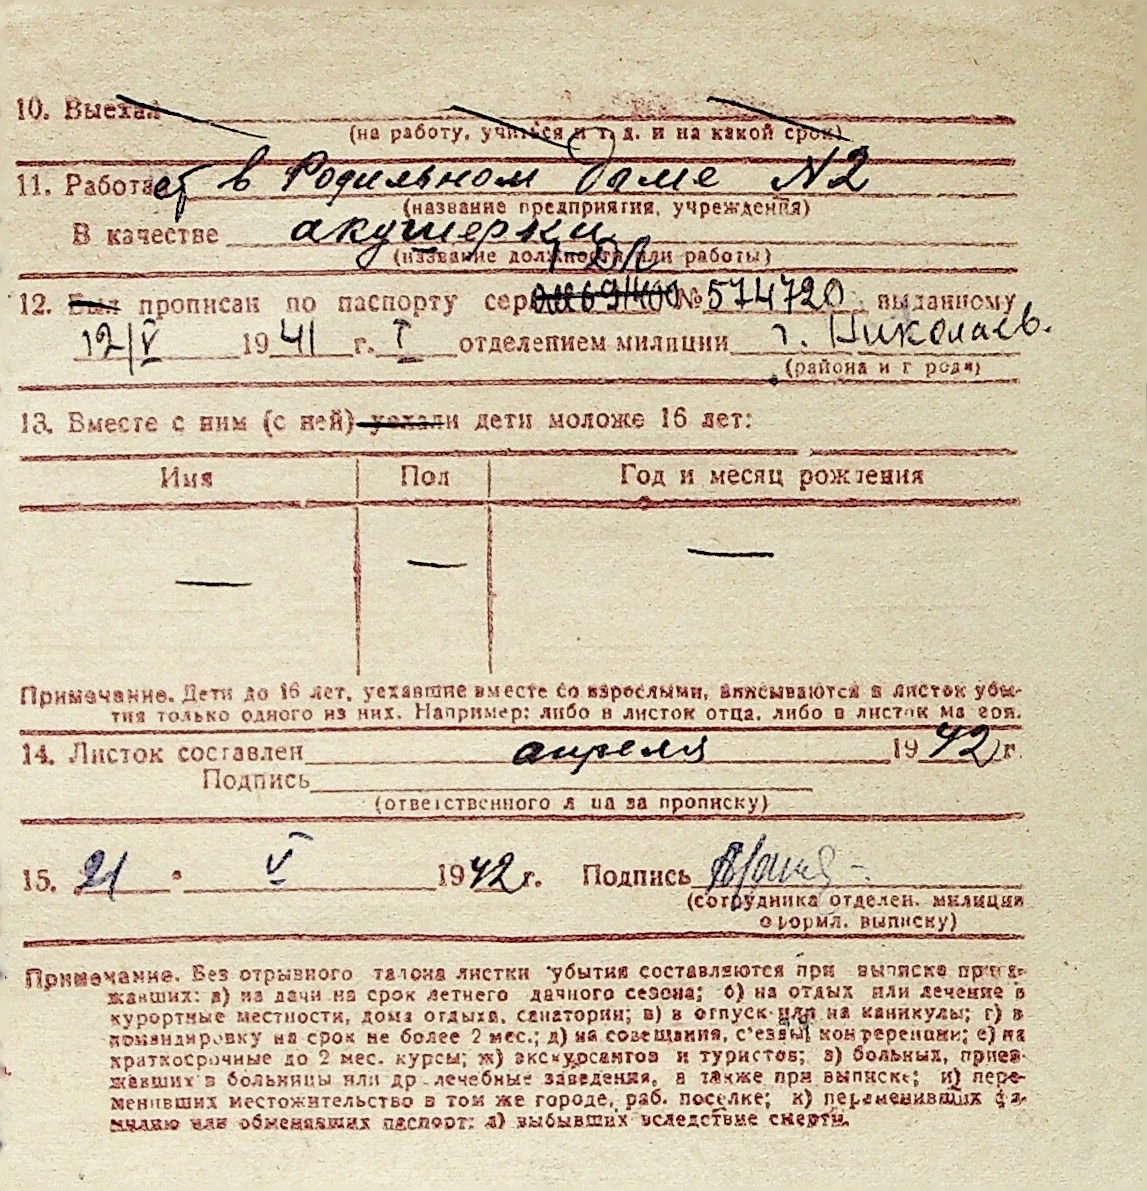 10. Выехал
(на работу, учиться и т. д. и на какой срок)
11. Работает в Родильном доме N2
(название предприятия, учреждения)
В качестве акушерки
(название должности или работы)
12. Был прописан по паспорту сер. № 574720 выданному
12/V 1941 г. I отделением милиции г. Николаев.
(района и города)
13. Вместе с ним (с ней) уехали дети моложе 16 лет:
Имя Пол Год и месяц рождения
— — —
Примечание. Дети до 16 лет, уехавшие вместе со взрослыми, вписываются в листок убы-
тия только одного из них. Например: либо в листок отца, либо в листок матери.
14. Листок составлен апреля 1942 г.
Подпись
(ответственного лица за прописку)
15. 21 " V 1942 г. Подпись
(сотрудника отделен. милиции
оформл. выписку)
Примечание. Без отрывного талона листки убытия составляются при выписке приез-
жавших: а) на дачи на срок летнего дачного сезона; б) на отдых или лечение в
курортные местности, дома отдыха, санатории; в) в отпуск или на каникулы; г) в
командировку на срок не более 2 мес.; д) на совещания, с'езды, конференции; е) на
краткосрочные до 2 мес. курсы; ж) экскурсантов и туристов; з) больных, приез-
жавших в больницы или др. лечебные заведения, а также при выписке; и) пере-
менивших местожительство в том же городе, раб. поселке; к) переменивших фа-
милию или обменявших паспорт; л) выбывших вследствие смерти.